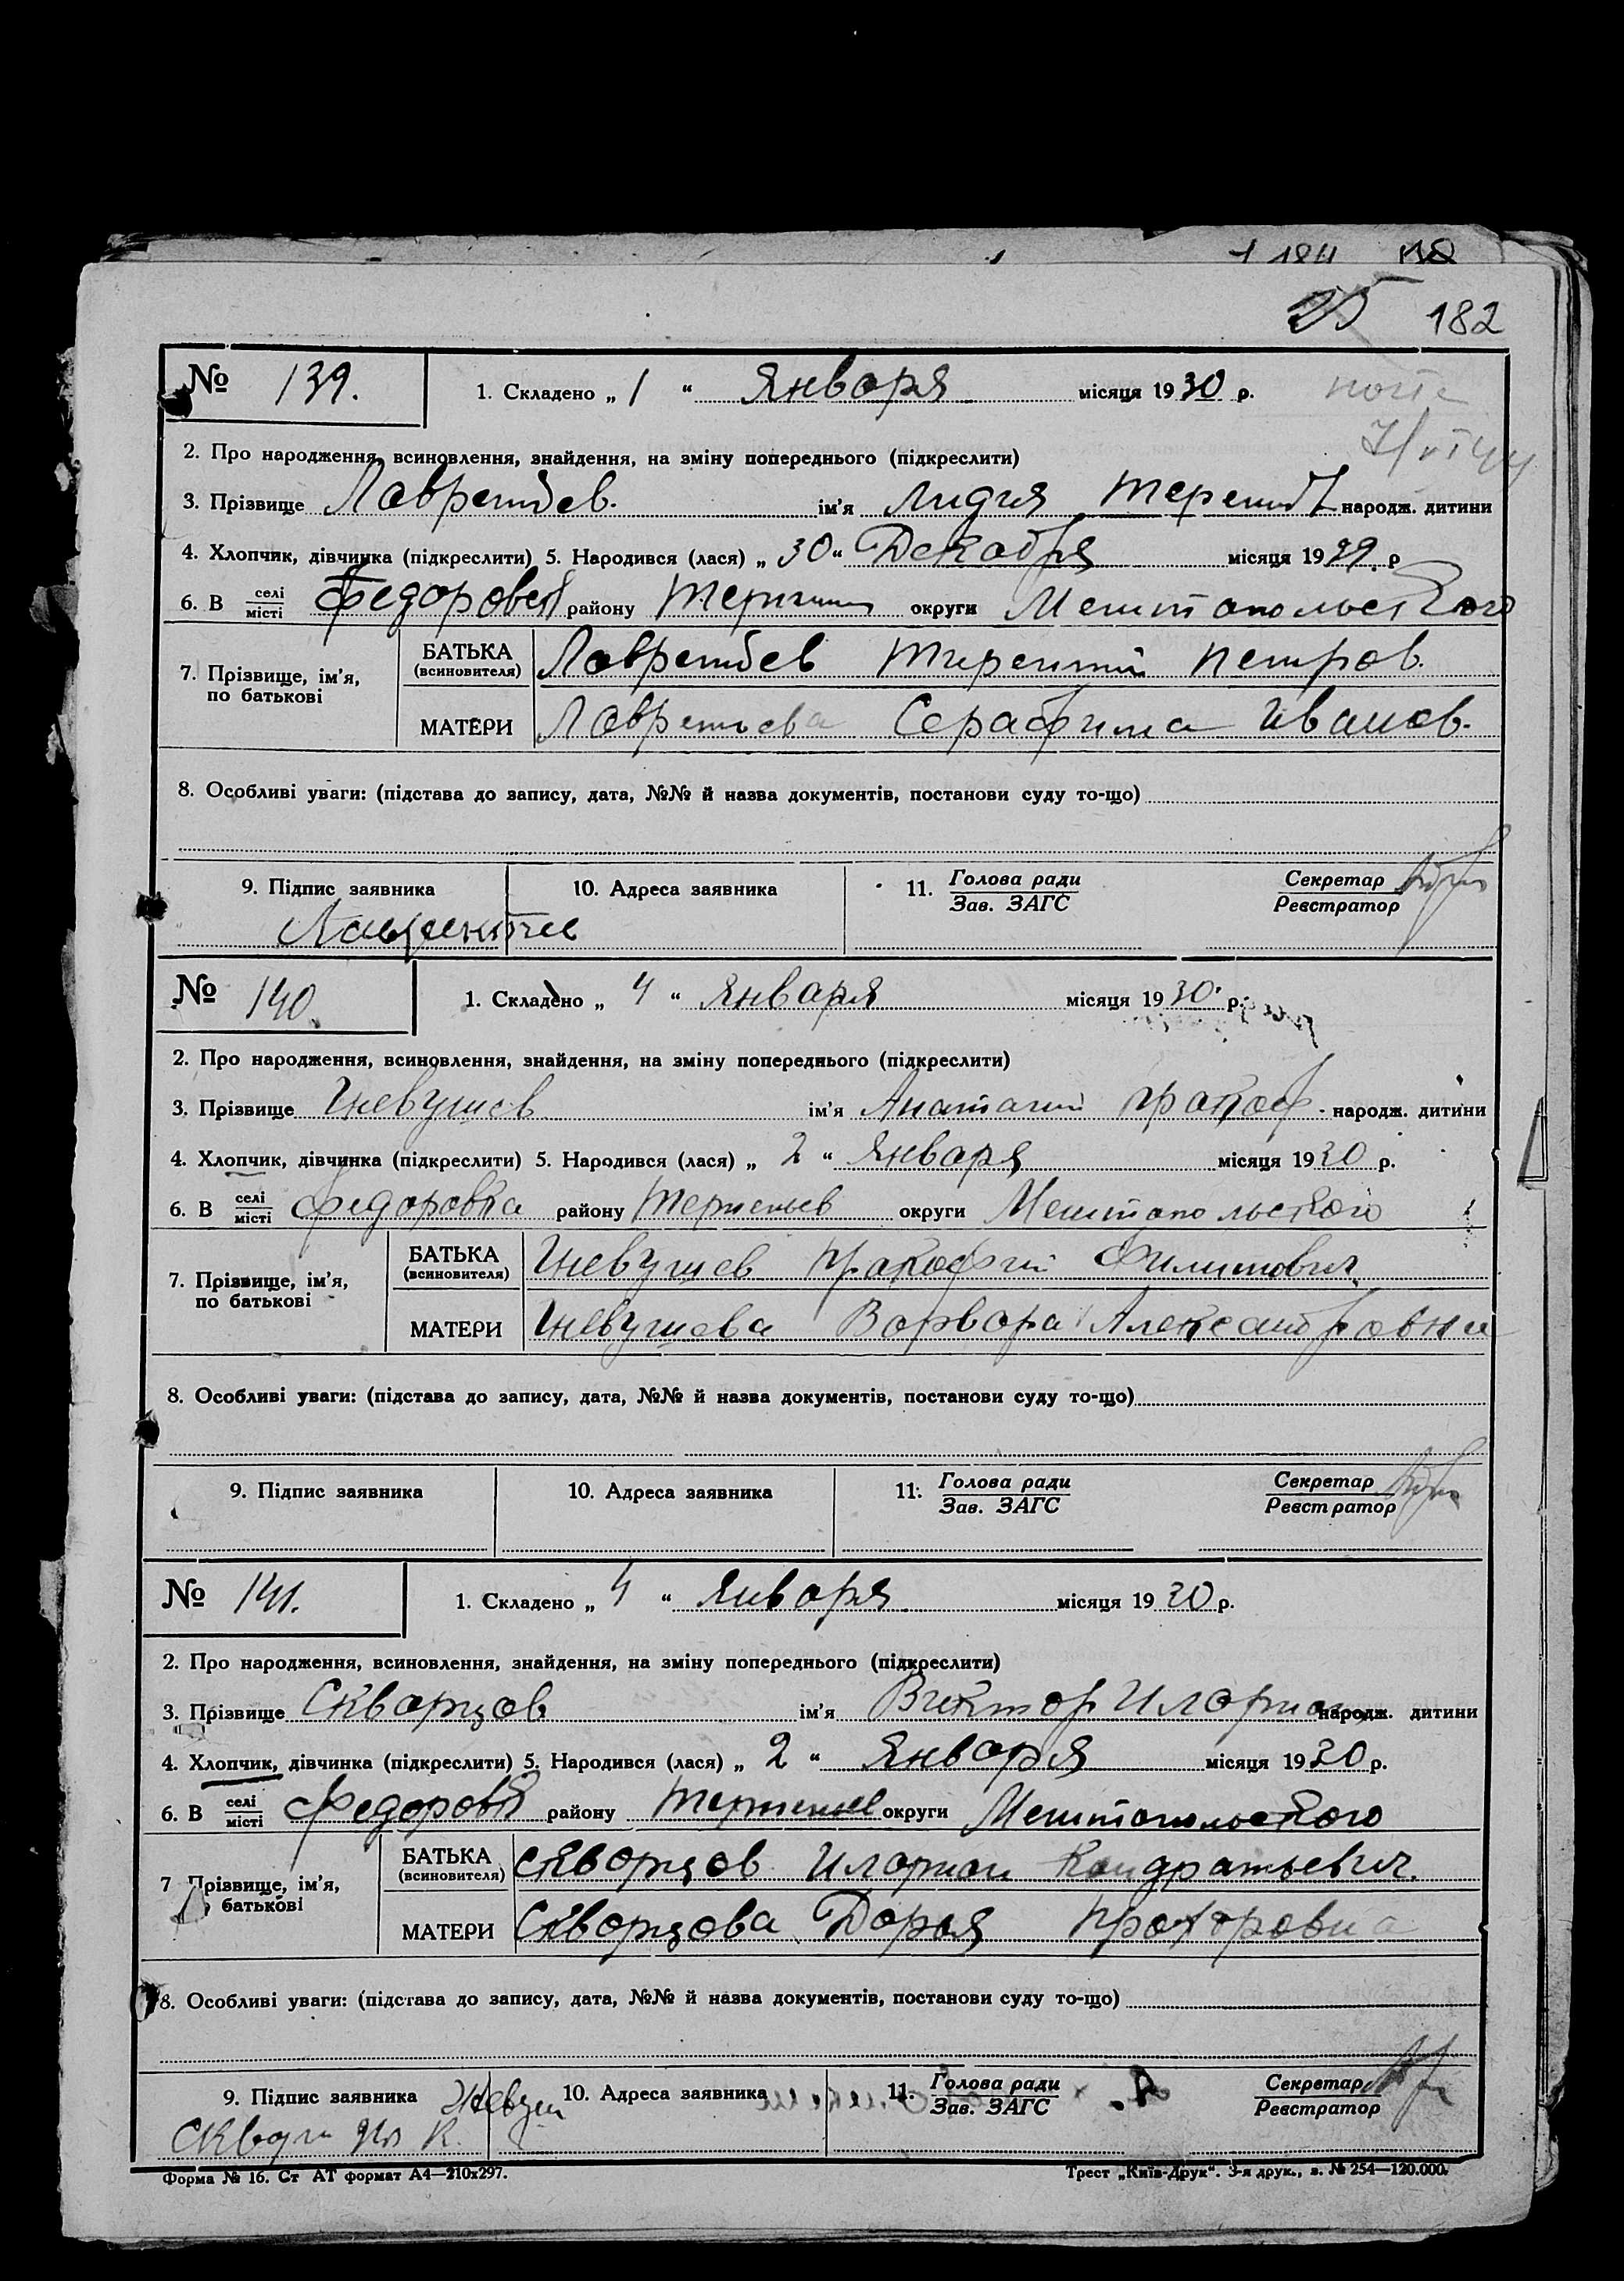 182
№ 139. 1. Складено „ 1 “ Января місяця 1930 р.
2. Про народження, всиновлення, знайдення, на зміну попереднього (підкреслити)
3. Прізвище Лаврентьев. ім'я Лидия народж. дитини
4. Хлопчик, дівчинка (підкреслити) 5. Народився (лася) „ 30 “ Декабря місяця 1929. р
6. В селі місті району округи Мелитопольского
7. Прізвище, ім'я, по батькові
БАТЬКА (всиновителя) Лаврентьев Терентий Петров.
МАТЕРИ Лаврентьева Серафима Иванов.
8. Особливі уваги: (підстава до запису, дата, №№ й назва документів, постанови суду то-що)
9. Підпис заявника 10. Адреса заявника 11. Голова ради Зав. ЗАГС Секретар Реєстратор
Лаврентьев
№ 140. 1. Складено „ 4 “ Января місяця 1930. р.
2. Про народження, всиновлення, знайдення, на зміну попереднього (підкреслити)
3. Прізвище Гневушев ім'я Анатолий Прокоф. народж. дитини
4. Хлопчик, дівчинка (підкреслити) 5. Народився (лася) „ 2 “ Января місяця 1930 р.
6. В селі місті Федоровка району округи Мелитопольского
7. Прізвище, ім'я, по батькові
БАТЬКА (всиновителя) Гневушев Прокофий Филиппович
МАТЕРИ Гневушева Варвара Александровна
8. Особливі уваги: (підстава до запису, дата, №№ й назва документів, постанови суду то-що)
9. Підпис заявника 10. Адреса заявника 11. Голова ради Зав. ЗАГС Секретар Реєстратор
№ 141. 1. Складено „ 4 “ Января місяця 1930 р.
2. Про народження, всиновлення, знайдення, на зміну попереднього (підкреслити)
3. Прізвище Скворцов ім'я Виктор Иларион народж. дитини
4. Хлопчик, дівчинка (підкреслити) 5. Народився (лася) „ 2 “ Января місяця 1930 р.
6. В селі місті району округи Мелитопольского
7 Прізвище, ім'я, батькові
БАТЬКА (всиновителя) Скворцов Иларион Кондратьевич.
МАТЕРИ Скворцова Дарья Прохоровна
8. Особливі уваги: (підстава до запису, дата, №№ й назва документів, постанови суду то-що)
9. Підпис заявника 10. Адреса заявника 11. Голова ради Зав. ЗАГС Секретар Реєстратор
Форма № 16. Ст АТ формат А4—210x297. Трест „Київ-Друк“. 3-я друк., з. № 254—120.000.